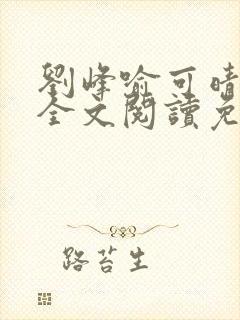 劉峰喻可晴
全文閱讀免
路苔生